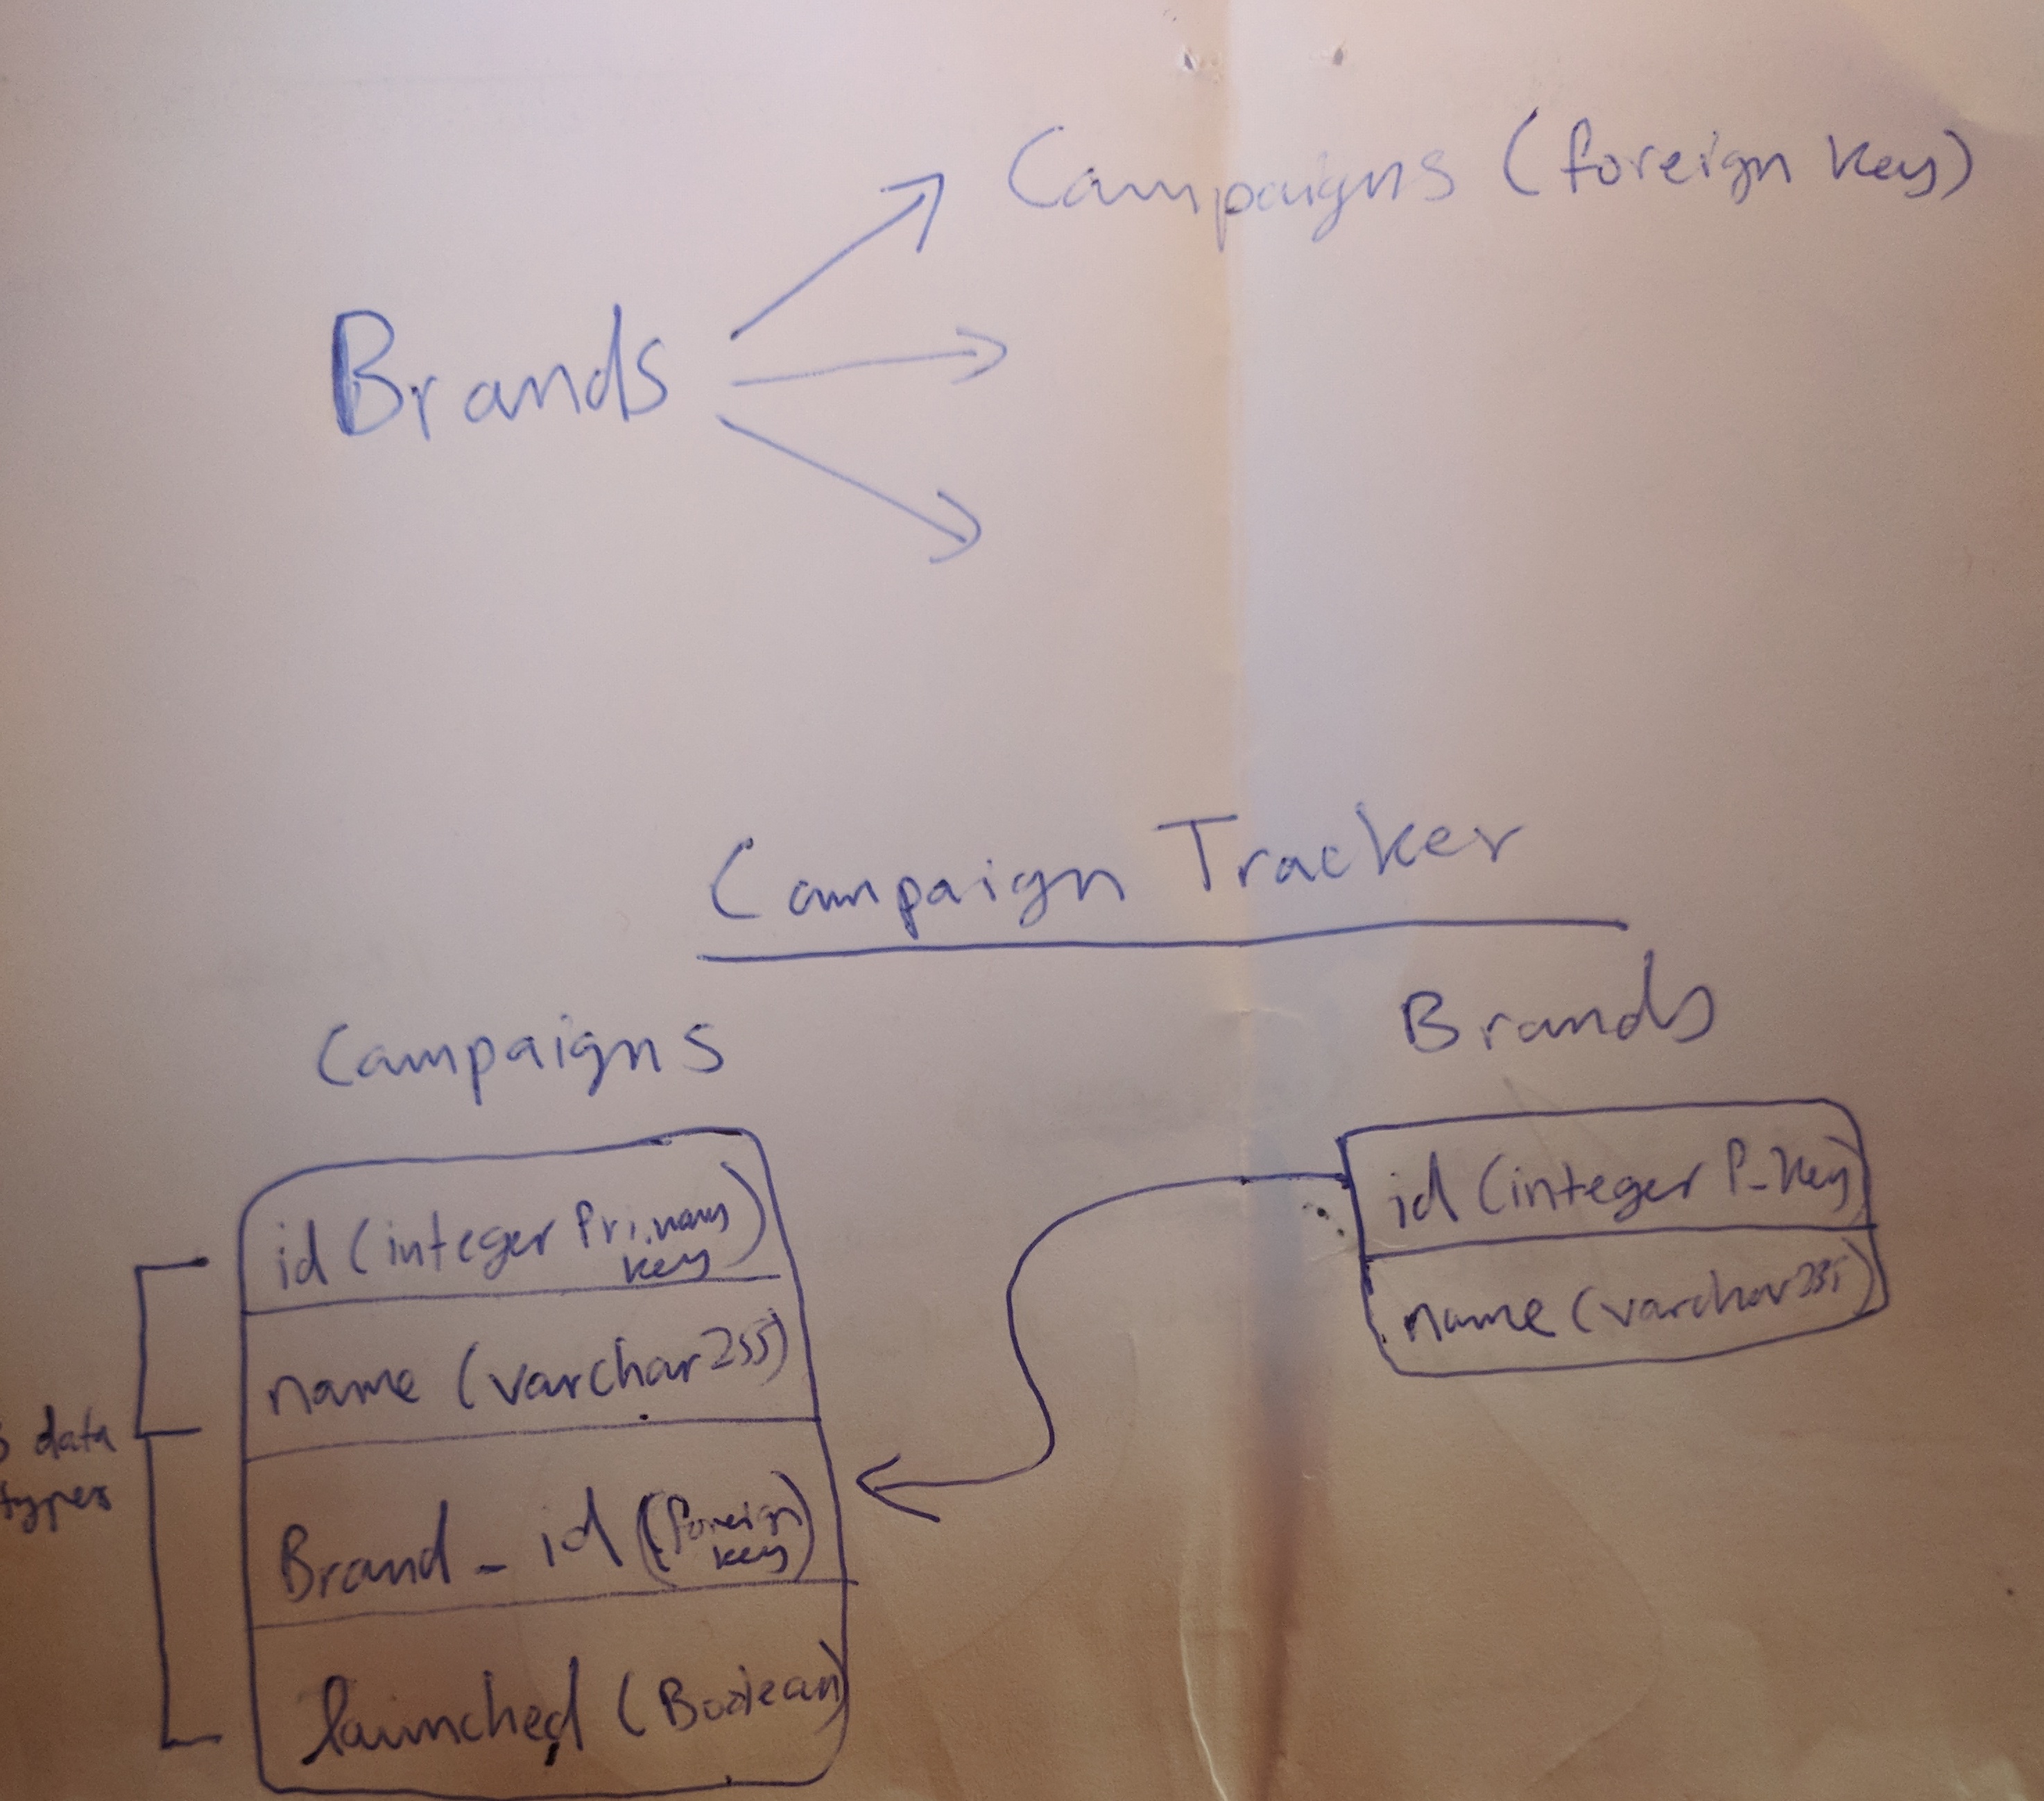 Campaigns (foreign key)
Brands
Campaign Tracker
Campaigns
Brands
id (integer Primary
key)
name (varchar255)
Brand_id (foreign
key)
launched (Boolean)
data
types
id (integer P_key)
name (varchar255)